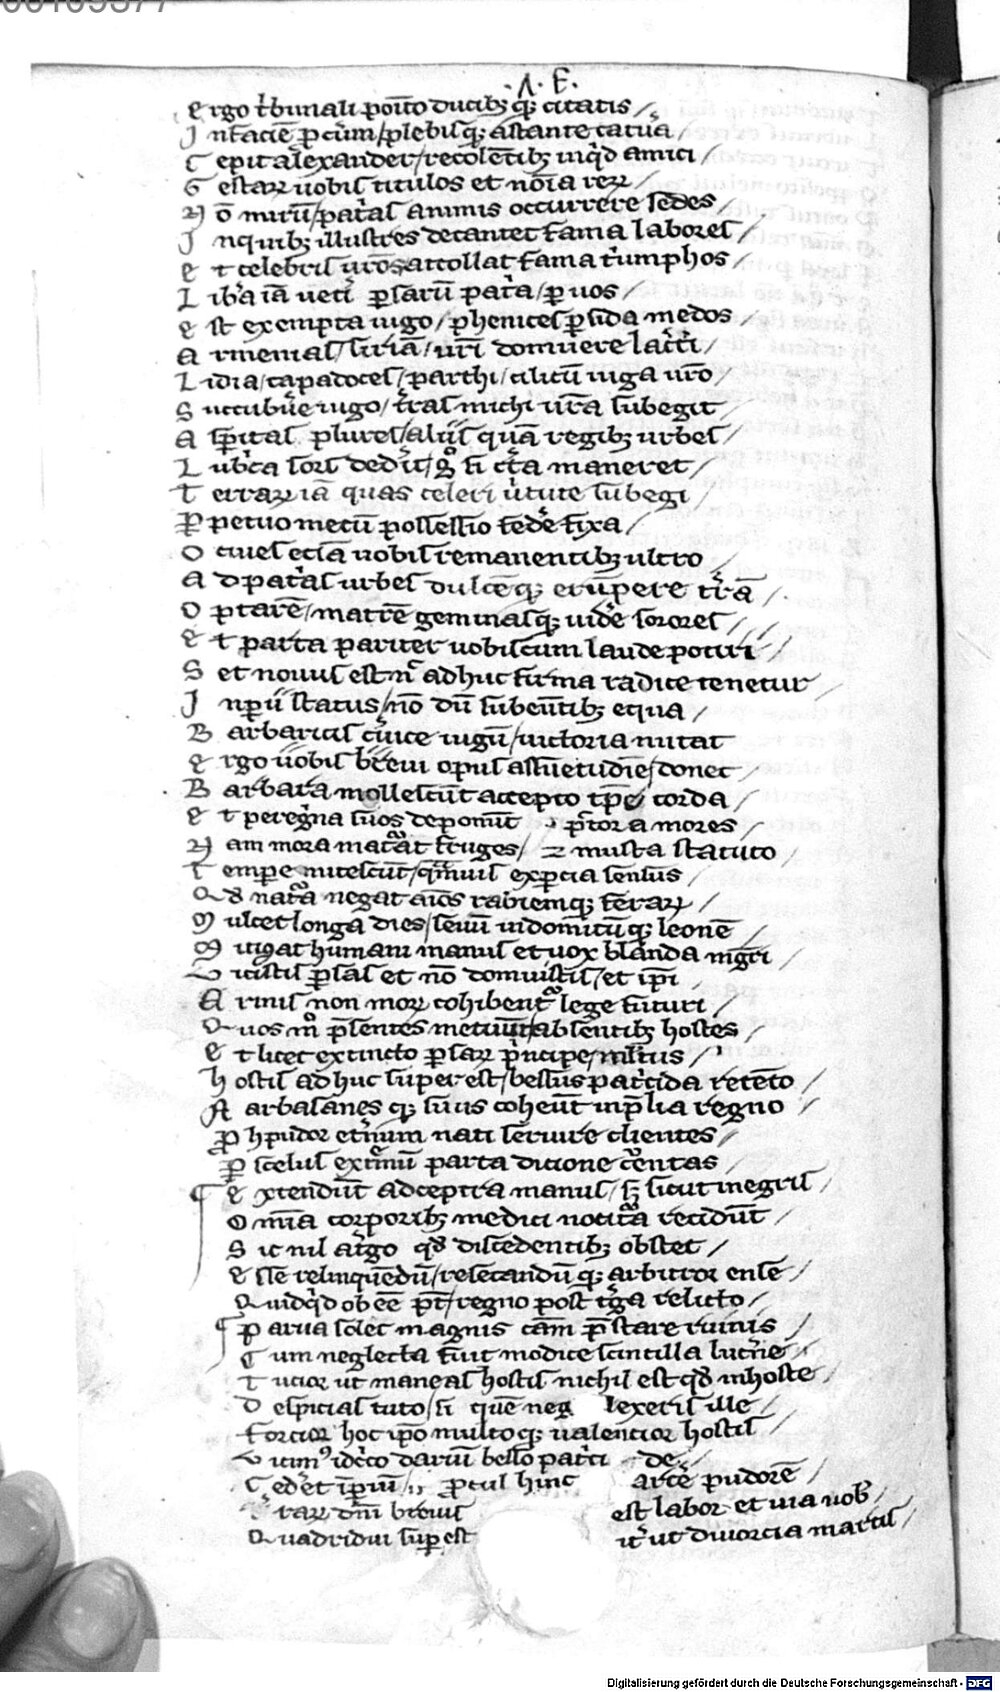 00109377
·A· E·
Ergo tͥbunali poſito ducibꝫ qꝫ citatis /
In facie ꝓcerūm / plebiſqꝫ aſtante caterua /
Cepit alexander / recolētibꝫ inqͥd amici /
Geſtaꝝ uobis titulos et noīa reꝝ /
Nō mirū / patͥas animis occurrere ſedes /
In quibꝫ illuſtres decantet fama labores /
Et celebris uros attollat fama tͥumphos /
Libͥa iā ueſtͥ perſarū patͥa / ꝑ uos /
Eſt exempta iugo / phenices perſida medos /
Armenias / ſiriā / urī domuere lacertī /
Lidia / capadoces / parthi / cilicū iuga uro /
Succubuere iugo / tͥras michi ura ſubegit /
Aſperitas plures / aliis quā regibꝫ urbes /
Lubͥca ſors dedͥit / qͦ ſi certa maneret /
Terraꝝ iā quas celeri uͥtute ſubegi /
Perpetuo mecū poſſeſſio federe fixa /
O ciues eciā uobis remanentibꝫ ultro /
Ad patͥas urbes dulcēqꝫ erūpere tͥrā /
Optarē / matrē geminaſqꝫ uidͥe ſorores /
Et parta pariter uobiscum laude potiri /
Set nouus eſt nͥ adhuc firma radice tenetur /
Imperii ſtatus / nō dū ſubeūtibꝫ equa /
Barbaricis ceruice iugū / uictoria nutat
Ergo uobis breui opus aſſuetudīe / donec /
Barbara molleſcūt accepto tꝑe corda /
Et peregͥna ſuos deponūt pͥtora mores /
Nam mora maturat fruges / et muſta ſtatuto /
Tempore miteſcūt / quāuis expercia ſenſus /
Qd natͥa negat aīos rabiemqꝫ feraꝝ /
Mulcet longa dies / ſeuū indomitūqꝫ leonē /
Mitigat humani manus et uox blanda magͥi /
Viciſtis perſas et nō domuiſtis / et ipͥi /
Armis non moꝝ cohibentͥ lege futuri /
Qui uos mͦ preſentes metuūt / abſentibꝫ hoſtes /
Et licet extincto perſaꝝ pͥncipe / mltͥus /
Hoſtis adhuc ſupereſt / beſſus patͥcida retēto /
Nabarſanes qꝫ ſuis coheūt in plia regno /
Proh pudor etͥnum nati ſeruire clientes /
Per ſcelus extͥmū parta dicione cruentas /
Extendūt ad ceptra manus / ſꝫ ſicut in egris /
Omīa corporibꝫ medici nocitͥa recidūt /
Sic nil a tͥgo qd diſcedentibꝫ obſtet /
Eſſe relinquēdū / reſecandūqꝫ arbitror enſe /
Quidqͥd obeſſe pͥt / regno poſt tͥga relicto /
Parua ſolet magnis cām preſtare ruinis /
Cum neglecta fuit modice ſcintilla lucͥne /
Tucior ut maneas hoſtis nichil eſt qd in hoſte /
Deſpicias tuto / ſi quē neglexeris ille /
Forcior hoc ipo multoqꝫ ualencior hoſtis /
Vicimꝰ idcͥco dariū beſſo patͥcide /
Cederet imperiū / procul hinc arcete pudorē /
Terraꝝ dͥm breuis eſt labor et uia nob /
Quadridui ſupereſt iͥt ut diuorcia martis /
Digitalisierung gefördert durch die Deutsche Forschungsgemeinschaft - DFG